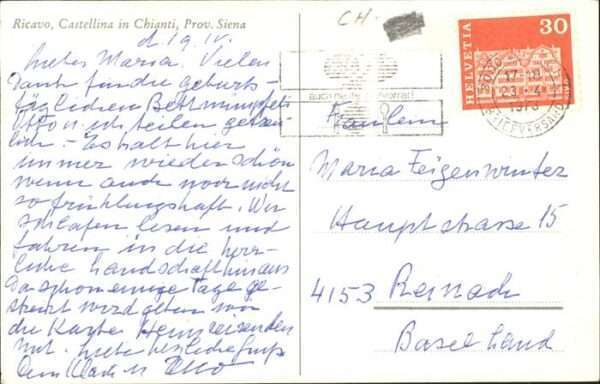 Ricavo, Castellina in Chianti, Prov. Siena
CH-
d. 19. IV.
Liebe Maria. Vielen
Dank für die geburts-
täglichen Bettmümpfeli
Otto u. ich teilen
lich. Es ist hier
immer wieder schön
wenn auch noch nicht
so frühlingshaft. Wir
schlafen lesen und
fahren in die herr-
liche Landschaft hinaus
Da schon einige Tage ge-
streikt wird geben wir
die Karte Heimreisenden
mit. Liebe herzliche Grüsse
Otto
HELVETIA
30
23. 4.
Fräulein
Maria Feigenwinter
Hauptstrasse 15
4153 Reinach
Baselland